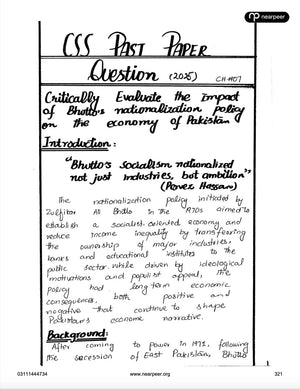 nearpeer
CSS PAST PAPER
Question (2025) CH#07
Critically Evaluate the impact
of Bhutto's nationalization policy
on the economy of Pakistan
Introduction:
"Bhutto's Socialism nationalized
not just industries, but ambition"
(Pervez Hassan)
The nationalization policy initiated by
Zulfikar Ali Bhutto in the 1970s aimed to
establish a socialist-oriented economy and
reduce income inequality by transferring
the ownership of major industries,
banks and educational institutes to the
public sector. while driven by ideological
motivations and populist appeal, the
policy had long term economic
consequences, both positive and
negative that continue to shape
Pakistan's economic narrative.
Background:
After coming to power in 1971, following
the secession of East Pakistan, Bhutto
03111444734 www.nearpeer.org 321